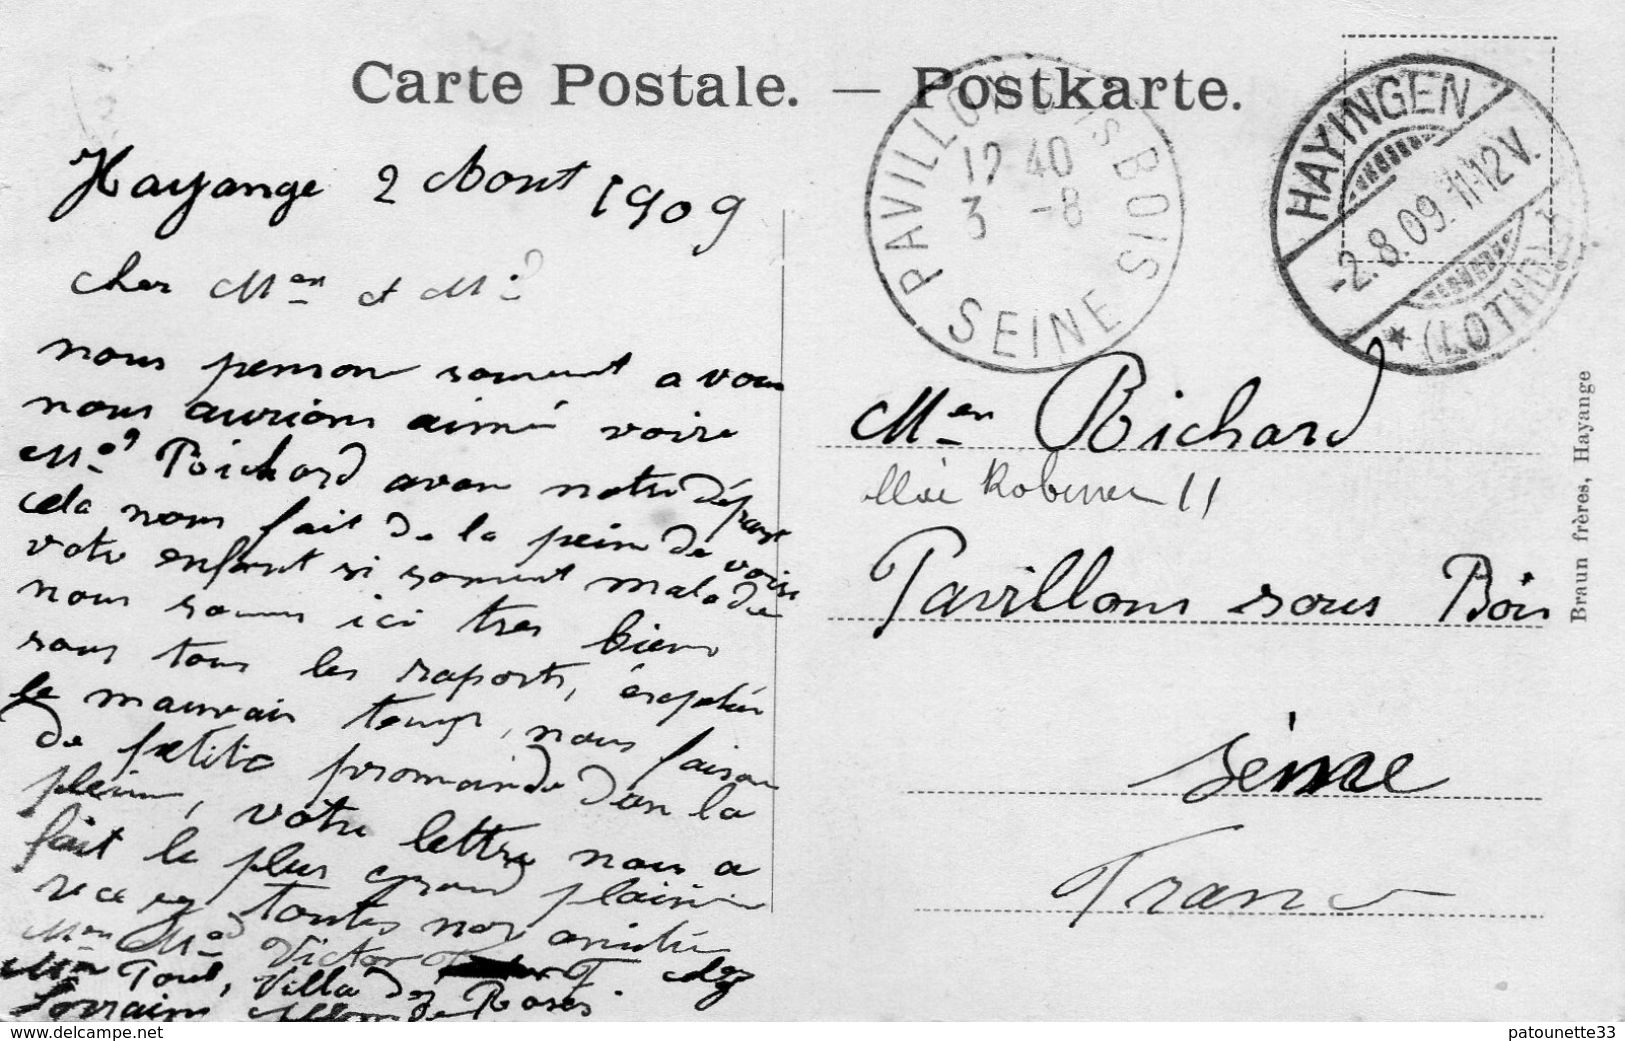 Carte Postale. — Postkarte.
Hayange 2 Aout 1909
cher Men et Md
nous penson souvent a vous
nous aurions aimé voire
Md Richard avan notre départ
cela nous fait de la pein de voire
votre enfant si souvent malade
nous somm ici tres biens
sous tous les raports, éseptée
le mauvais temps, nous faison
de petite promainde dan la
pleine, votre lettre nous a
fait le plus grand plaisir
recevez toutes nos amitié
Men Md Victor F. chez
Men Poul, Villa des Roses
Lorraine
PAVILLONS S BOIS
12 40
3 -8
SEINE
HAYINGEN
-2.8.09.11-12V.
* (LOTHR.)
Men Richard
11
Pavillons sous Bois
Seine
France
Braun frères, Hayange
www.delcampe.net
patounette33